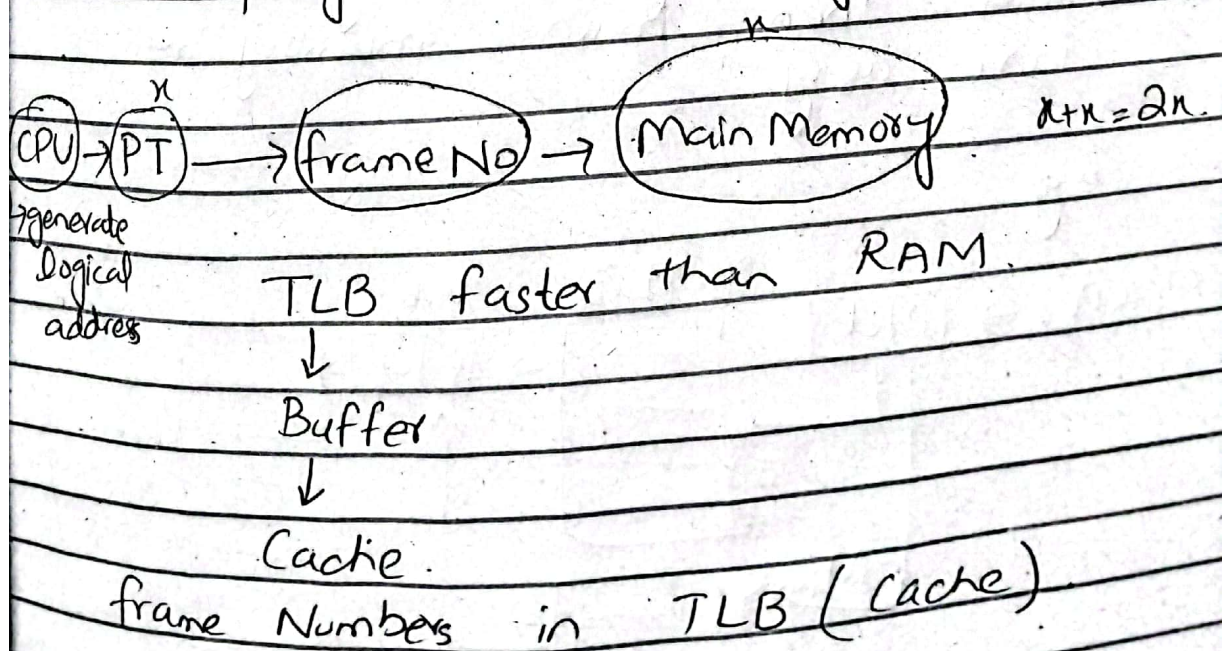 x x
CPU → PT → frame No → Main Memory x+x=2x.
→generate
Logical
address
TLB faster than RAM.
↓
Buffer
↓
Cache.
frame Numbers in TLB (Cache)